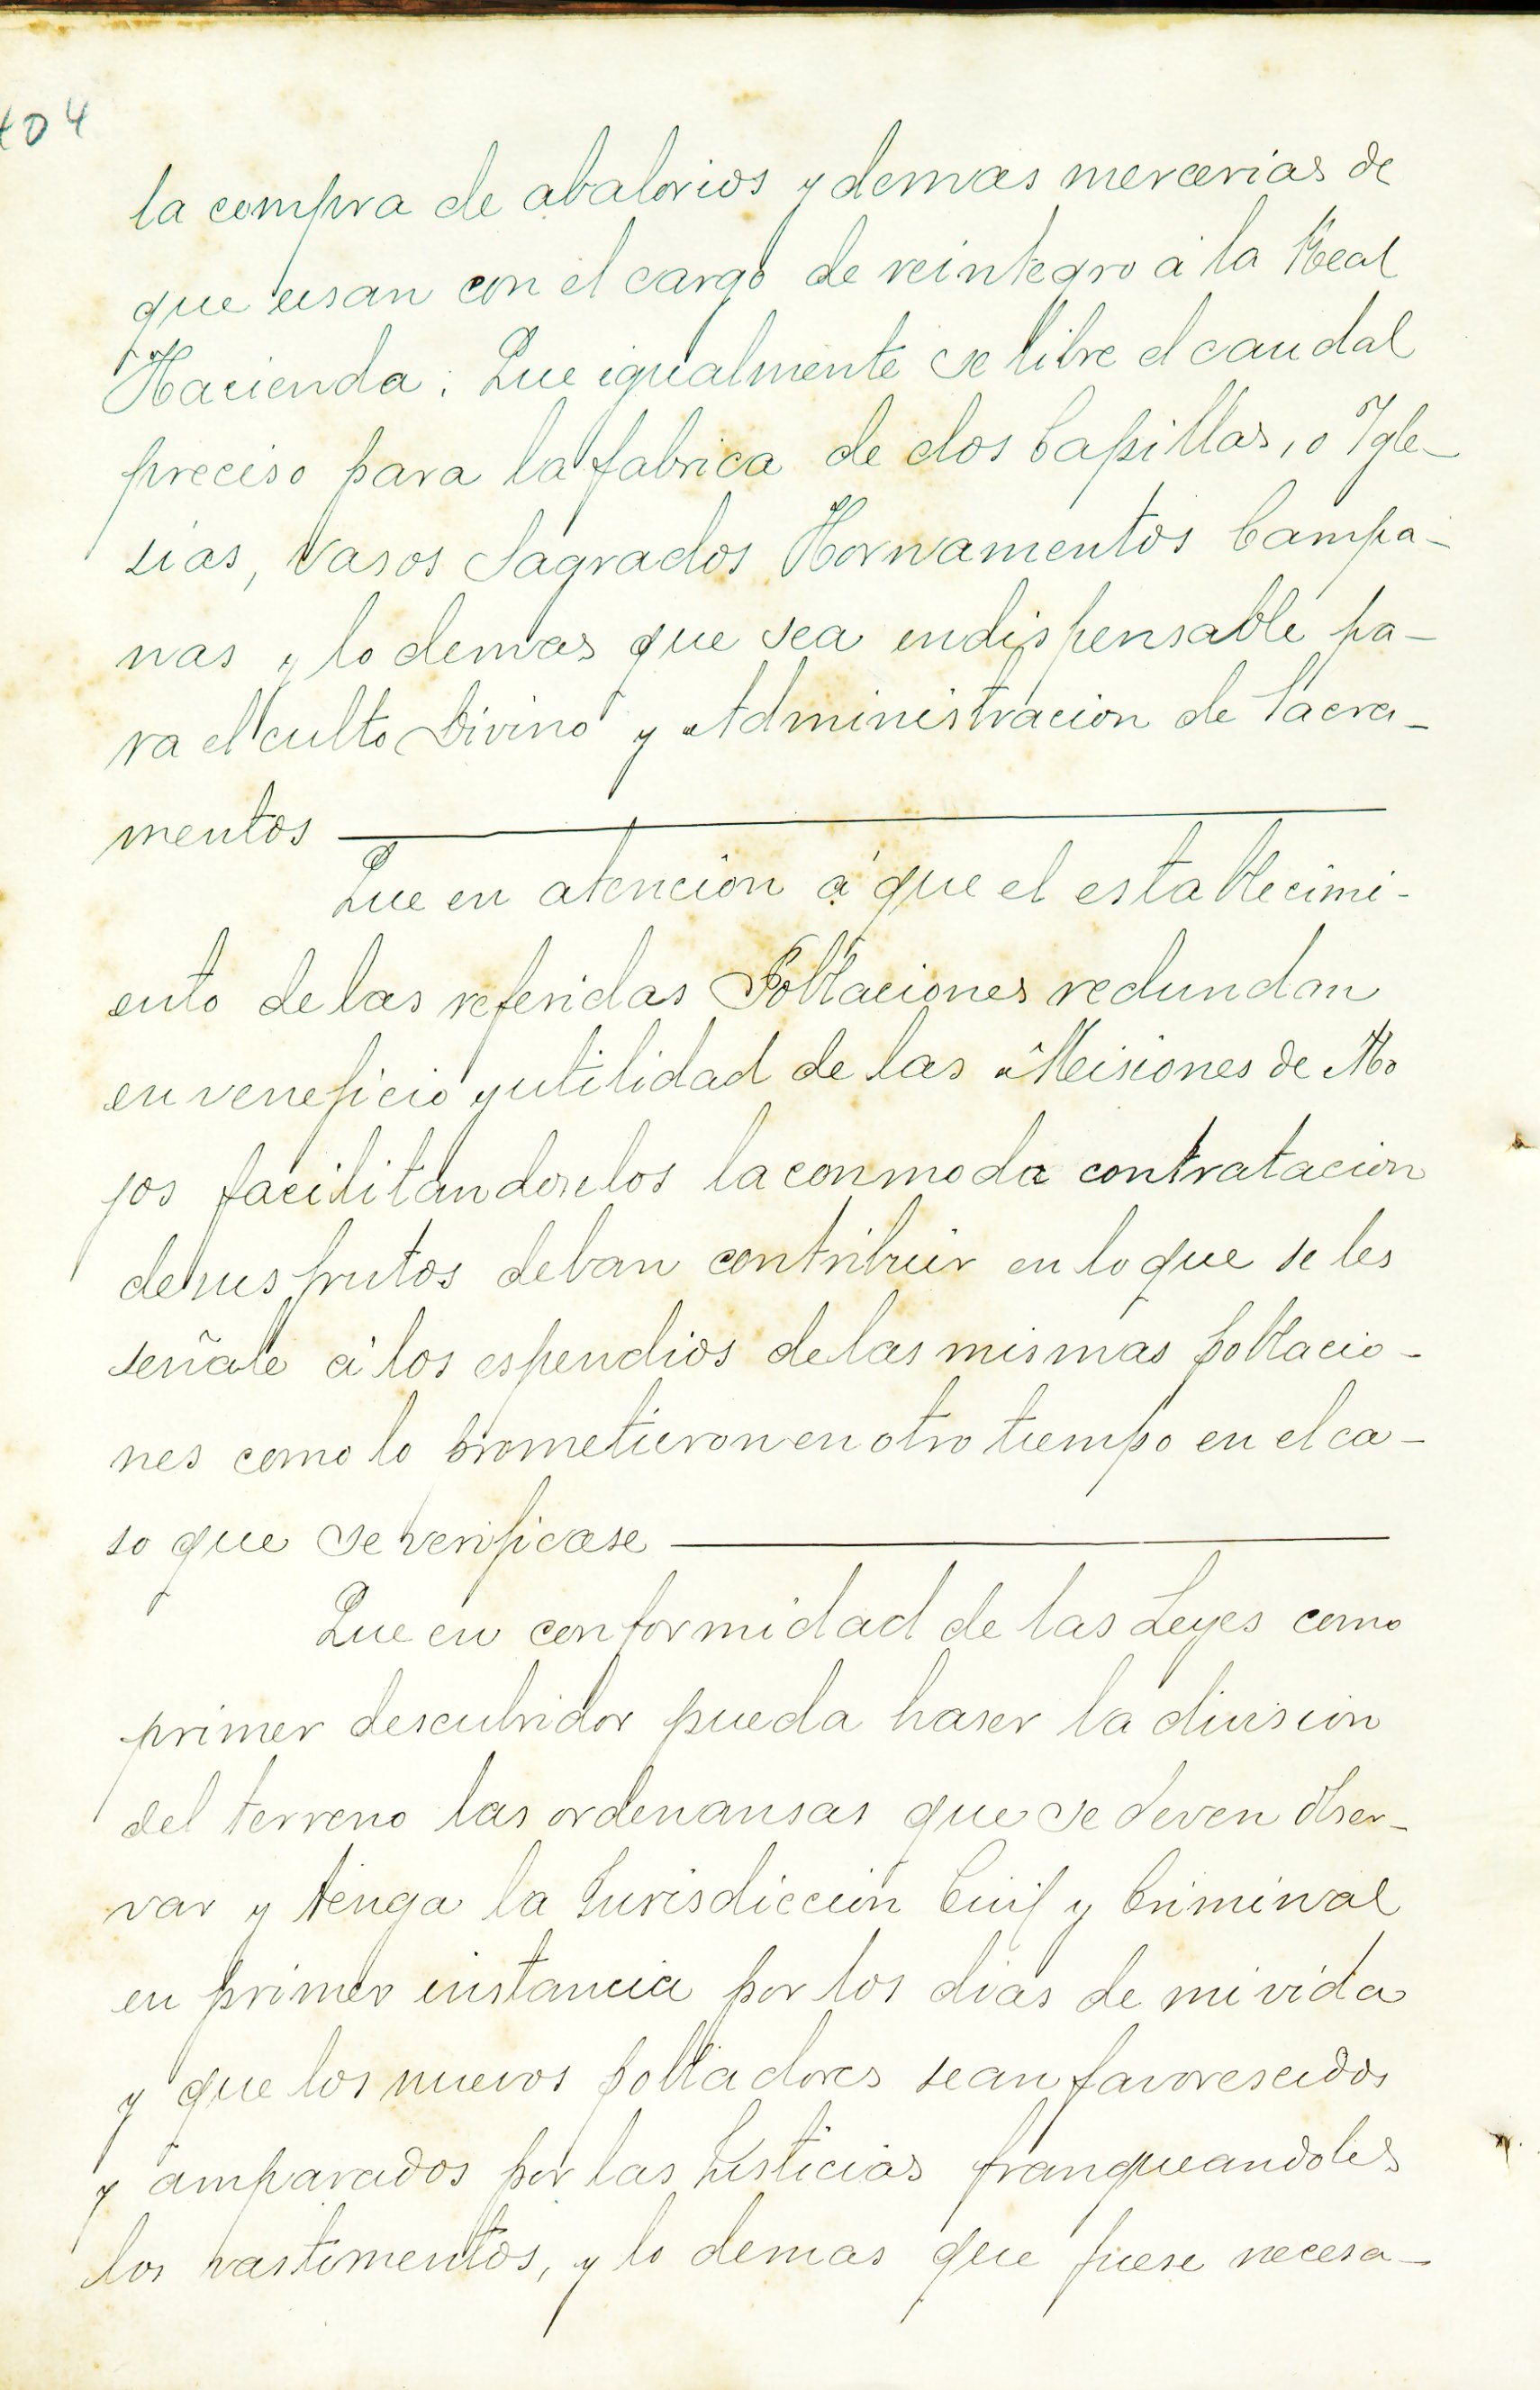 404
la compra de abalorios y demas mercerias de
que usan con el cargo de reintegro á la Real
Hacienda. Que igualmente se libre el caudal
preciso para la fabrica de dos Capillas, o Ygle-
sias, Vasos Sagrados Hornamentos Campa-
nas y lo demas que sea endispensable pa-
ra el culto Divino y Administracion de Sacra-
mentos
Que en atencion á que el establecimi-
ento de las referidas Poblaciones redundan
en veneficio y utilidad de las Misiones de Mo
jos facilitandoselos la conmoda contratacion
de sus frutos deban contribuir en lo que se les
señale á los espendios de las mismas poblacio-
nes como lo prometieron en otro tiempo en el ca-
so que se verificase
Que en conformidad de las Leyes como
primer descubridor pueda haser la division
del terreno las ordenansas que se deven obser-
var y tenga la Jurisdiccion Civil y Criminal
en primer instancia por los dias de mi vida
y que los nuevos pobladores sean favorescidos
y amparados por las Justicias franqueandoles
los vastimentos, y lo demas que fuese necesa-